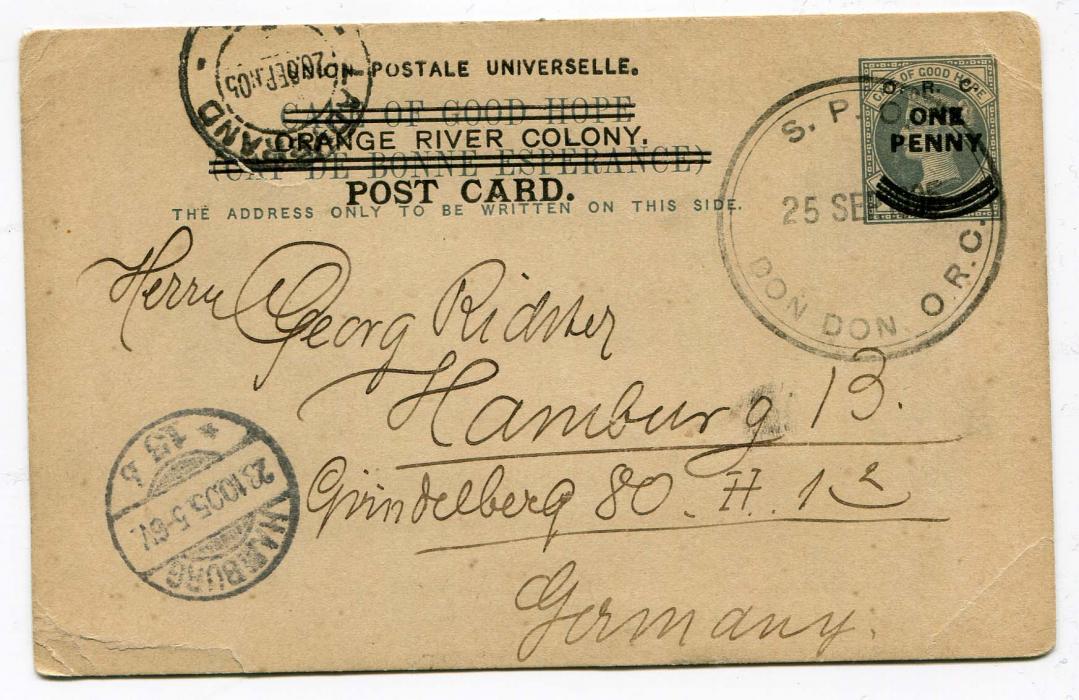 UNION POSTALE UNIVERSELLE.
CAPE OF GOOD HOPE
ORANGE RIVER COLONY.
(CAP DE BONNE ESPERANCE)
POST CARD.
THE ADDRESS ONLY TO BE WRITTEN ON THIS SIDE.
20 SEP 05
BRAND
CAPE OF GOOD HOPE
O. R. C.
ONE
PENNY
S. P. O.
25 SEP 05
DON DON. O.R.C.
Herrn Georg Richter
Hamburg 13.
Grindelberg 80. H. 12
Germany.
* 13 b
23.10.05.5-6V.
HAMBURG